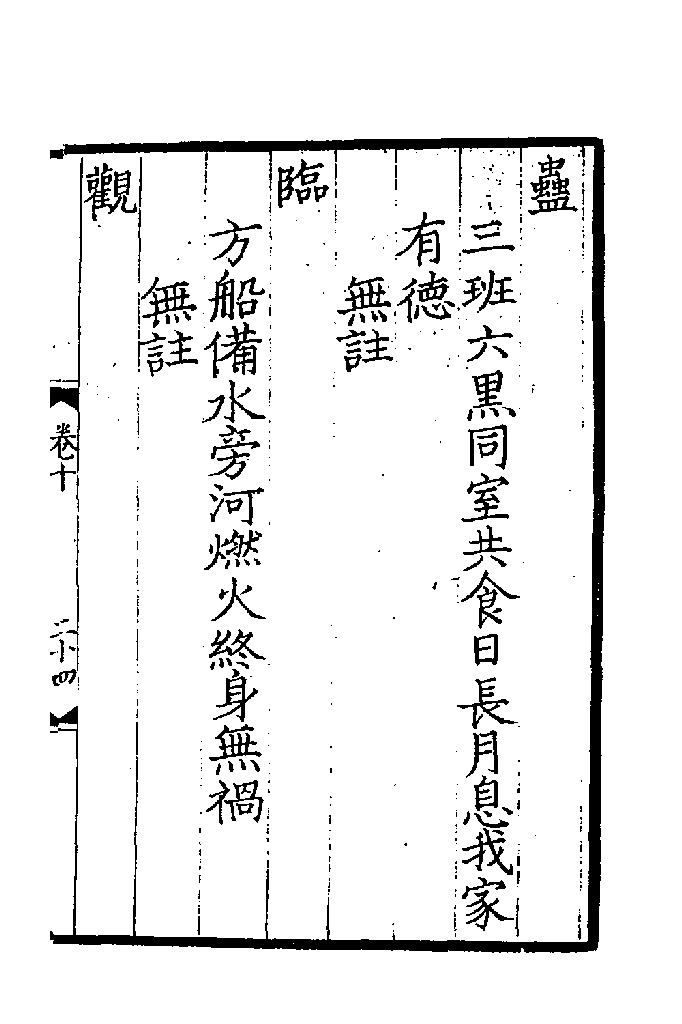 蠱
三班六黒同室共食日長月息我家
有徳
無註
臨
方船備水旁河燃火終身無禍
無註
觀
卷十
二十四